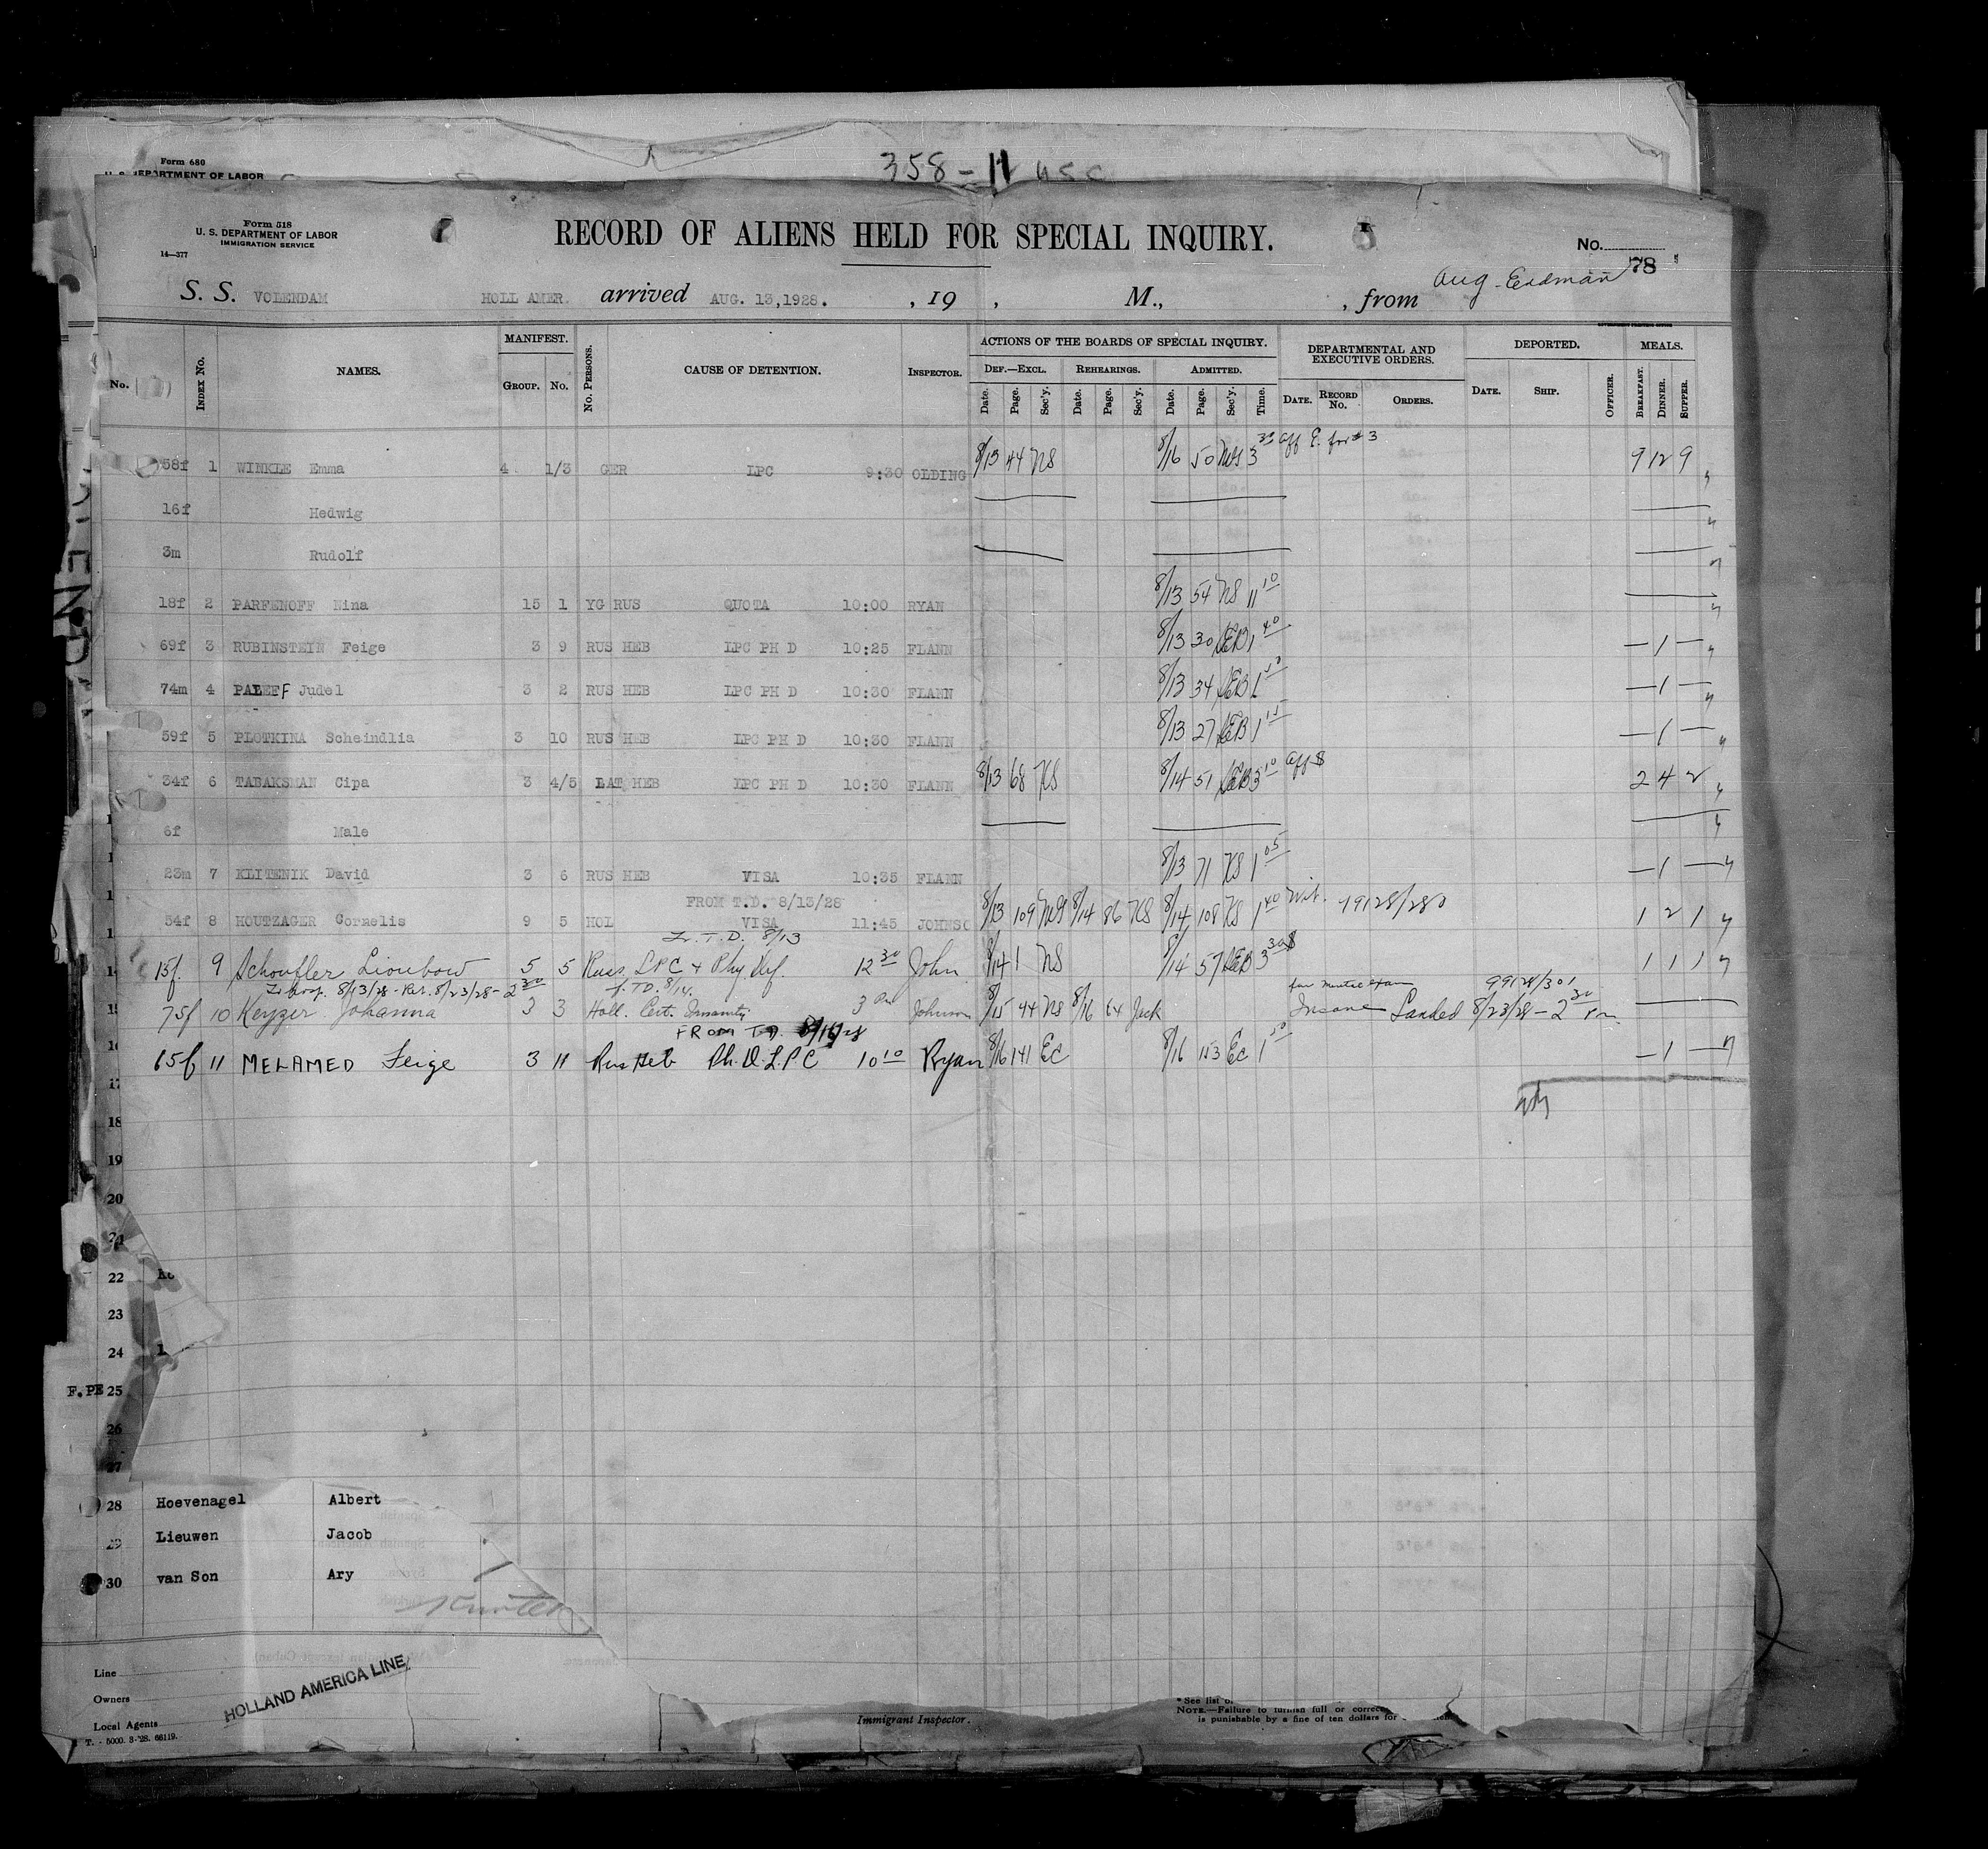 Form 680
U. S. DEPARTMENT OF LABOR
358-11 USC
Form 518
U. S. DEPARTMENT OF LABOR
IMMIGRATION SERVICE
14—377
RECORD OF ALIENS HELD FOR SPECIAL INQUIRY.
No.
78
Aug. Erdman
S. S. VOLENDAM HOLL AMER. arrived AUG. 13, 1928. , 19 , M., , from
No. INDEX NO. NAMES. MANIFEST. GROUP. NO. NO. PERSONS. CAUSE OF DETENTION. INSPECTOR. ACTIONS OF THE BOARDS OF SPECIAL INQUIRY. DEF.—EXCL. Date. Page. Sec'y. REHEARINGS. Date. Page. Sec'y. ADMITTED. Date. Page. Sec'y. Time. DEPARTMENTAL AND EXECUTIVE ORDERS. DATE. RECORD NO. ORDERS. DEPORTED. DATE. SHIP. OFFICER. MEALS. BREAKFAST. DINNER. SUPPER.
58f 1 WINKLE Emma 4 1/3 GER LPC 9:30 OLDING 8/13 44 NS 8/16 50 3 30 9 12 9
16f Hedwig
3m Rudolf
18f 2 PARFENOFF Nina 15 1 YG RUS QUOTA 10:00 RYAN 8/13 54 NS 11 10
69f 3 RUBINSTEIN Feige 3 9 RUS HEB LPC PH D 10:25 FLANN 8/13 30 LEB 1 40 — 1 —
74m 4 PALEFF Judel 3 2 RUS HEB LPC PH D 10:30 FLANN 8/13 34 LEB 1 — 1 —
59f 5 PLOTKINA Scheindlia 3 10 RUS HEB LPC PH D 10:30 FLANN 8/13 27 LEB 1 15 — 1 —
34f 6 TABAKSMAN Cipa 3 4/5 LAT HEB LPC PH D 10:30 FLANN 8/13 68 NS 8/14 51 LEB 3 10 2 4 2
6f Male
23m 7 KLITENIK David 3 6 RUS HEB VISA 10:35 FLANN 8/13 71 NS 1 05 — 1 —
FROM T.D. 8/13/28
54f 8 HOUTZAGER Cornelis 9 5 HOL VISA 11:45 JOHNSO 8/13 109 8/14 86 NS 8/14 108 NS 1 40 1 2 1
Fr. T. D. 8/13
15f. 9 Schoufler Lioubow 5 5 Russ LPC & Phy. Def. 12 30 John 8/14 1 NS 8/14 57 LEB 3 30 1 1 1
To Hosp. 8/13/28 - Ret. 8/23/28 - 2 30 f. TD. 8/14.
75f 10 Keyzer Johanna 3 3 Holl. Cert. Insanity 3 Johnson 8/15 44 NS 8/16 64 Jack Insane Landed 8/23/28 - 2 30 Pm
FROM T.D. 8/16/28
65f 11 MELAMED Feige 3 11 Rus Heb Ph. D. LPC 10 10 Ryan 8/16 141 EC 8/16 153 EC 1 50 — 1 —
18
19
20
21
22
23
24
F. PE 25
26
27
28 Hoevenagel Albert
29 Lieuwen Jacob
30 van Son Ary
Line
Owners
Local Agents
HOLLAND AMERICA LINE
T. - 5000. 3-'28. 66119.
Immigrant Inspector.
* See list o
NOTE.—Failure to furnish full or correc
is punishable by a fine of ten dollars for